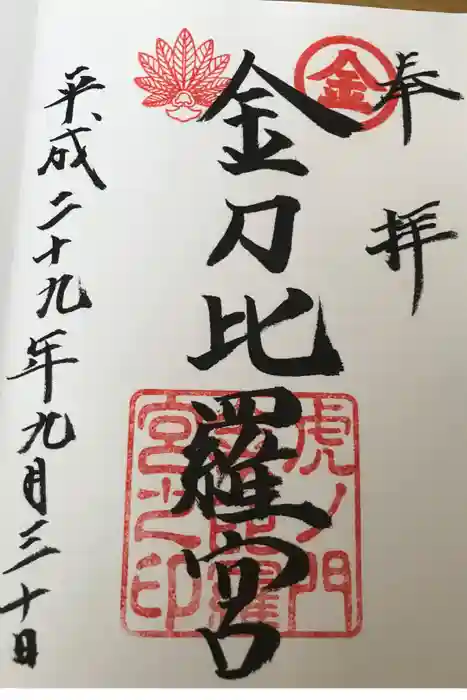 奉拝
金
金刀比羅宮
虎ノ門
宮之印
平成二十九年九月三十日